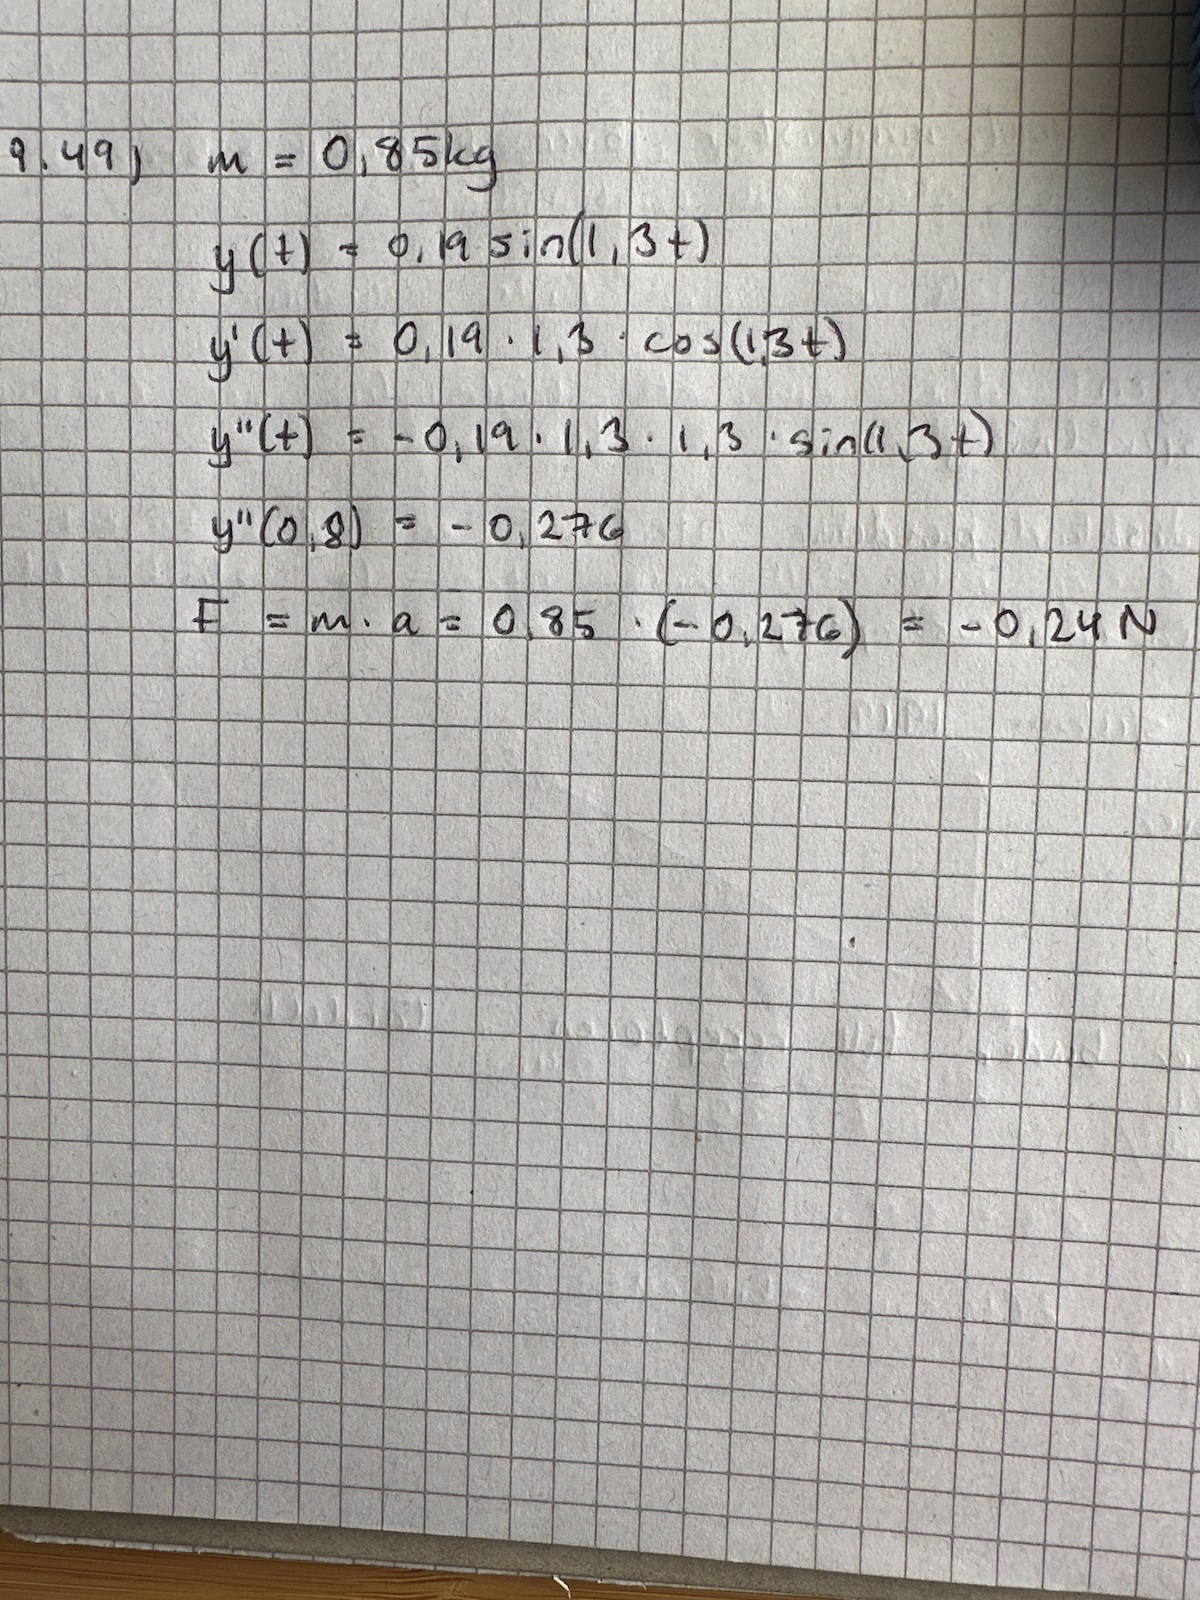 9.49) m = 0,85kg
y(t) = 0,19 sin(1,3t)
y'(t) = 0,19 · 1,3 · cos(1,3t)
y''(t) = -0,19 · 1,3 · 1,3 · sin(1,3t)
y''(0,8) = -0,276
F = m · a = 0,85 · (-0,276) = -0,24 N